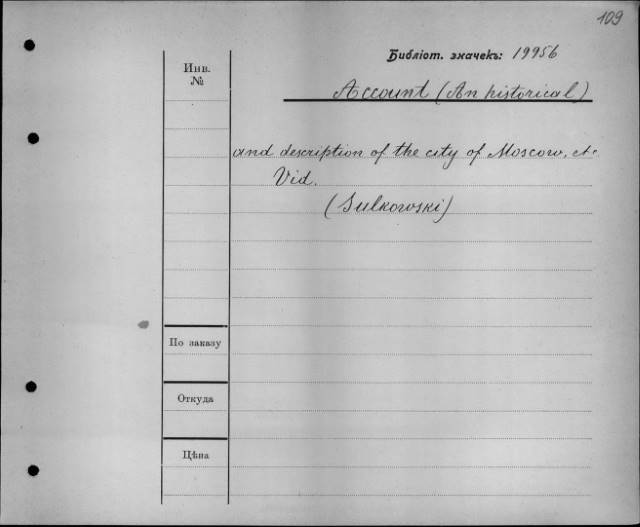 109
Библіот. значекъ: 19956
Инв.
№
Account (An historical)
and description of the city of Moscow, etc
Vid.
(Sulkowski)
По заказу
Откуда
Цѣна